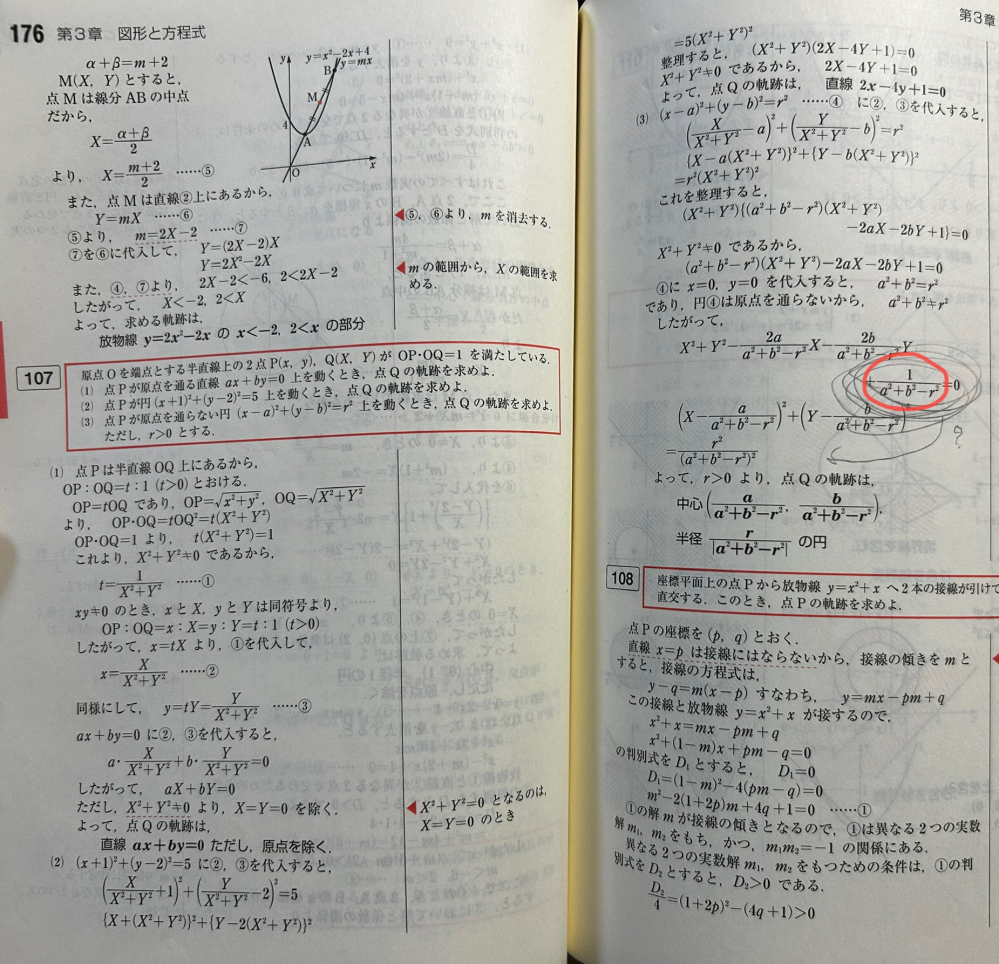 176 第3章 図形と方程式
α+β=m+2
M(X, Y)とすると,
点Mは線分ABの中点
だから,
X=(α+β)/2
より, X=(m+2)/2 ……⑤
y=x²-2x+4
y=mx
y
B
M
4
A
O
x
また, 点Mは直線②上にあるから,
Y=mX ……⑥
⑤より, m=2X-2 ……⑦
⑦を⑥に代入して, Y=(2X-2)X
Y=2X²-2X
また, ④, ⑦より, 2X-2<-6, 2<2X-2
したがって, X<-2, 2<X
よって, 求める軌跡は,
放物線 y=2x²-2x の x<-2, 2<x の部分
◀⑤, ⑥より, mを消去する.
◀mの範囲から, Xの範囲を求
める.
107
原点Oを端点とする半直線上の2点P(x, y), Q(X, Y)が OP・OQ=1 を満たしている.
(1) 点Pが原点を通る直線 ax+by=0 上を動くとき, 点Qの軌跡を求めよ.
(2) 点Pが円(x+1)²+(y-2)²=5 上を動くとき, 点Qの軌跡を求めよ.
(3) 点Pが原点を通らない円 (x-a)²+(y-b)²=r² 上を動くとき, 点Qの軌跡を求めよ.
ただし, r>0 とする.
(1) 点Pは半直線OQ上にあるから,
OP:OQ=t:1 (t>0) とおける.
OP=tOQ であり, OP=√(x²+y²), OQ=√(X²+Y²)
より, OP・OQ=tOQ²=t(X²+Y²)
OP・OQ=1 より, t(X²+Y²)=1
これより, X²+Y²≠0 であるから,
t=1/(X²+Y²) ……①
xy≠0 のとき, xとX, yとYは同符号より,
OP:OQ=x:X=y:Y=t:1 (t>0)
したがって, x=tX より, ①を代入して,
x=X/(X²+Y²) ……②
同様にして, y=tY=Y/(X²+Y²) ……③
ax+by=0 に②, ③を代入すると,
a・X/(X²+Y²)+b・Y/(X²+Y²)=0
したがって, aX+bY=0
ただし, X²+Y²≠0 より, X=Y=0 を除く.
よって, 点Qの軌跡は,
直線 ax+by=0 ただし, 原点を除く.
◀X²+Y²=0 となるのは,
X=Y=0 のとき
(2) (x+1)²+(y-2)²=5 に②, ③を代入すると,
(X/(X²+Y²)+1)²+(Y/(X²+Y²)-2)²=5
{X+(X²+Y²)}²+{Y-2(X²+Y²)}²
第3章
=5(X²+Y²)²
整理すると, (X²+Y²)(2X-4Y+1)=0
X²+Y²≠0 であるから, 2X-4Y+1=0
よって, 点Qの軌跡は, 直線 2x-4y+1=0
(3) (x-a)²+(y-b)²=r² ……④ に②, ③を代入すると,
(X/(X²+Y²)-a)²+(Y/(X²+Y²)-b)²=r²
{X-a(X²+Y²)}²+{Y-b(X²+Y²)}²
=r²(X²+Y²)²
これを整理すると,
(X²+Y²){(a²+b²-r²)(X²+Y²)
-2aX-2bY+1}=0
X²+Y²≠0 であるから,
(a²+b²-r²)(X²+Y²)-2aX-2bY+1=0
④に x=0, y=0 を代入すると, a²+b²=r²
であり, 円④は原点を通らないから, a²+b²≠r²
したがって,
X²+Y²-2a/(a²+b²-r²)X-2b/(a²+b²-r²)Y
+1/(a²+b²-r²)=0
(X-a/(a²+b²-r²))²+(Y-b/(a²+b²-r²))²
?
=r²/(a²+b²-r²)²
よって, r>0 より, 点Qの軌跡は,
中心(a/(a²+b²-r²), b/(a²+b²-r²)),
半径 r/|a²+b²-r²| の円
108
座標平面上の点Pから放物線 y=x²+x へ2本の接線が引けて
直交する. このとき, 点Pの軌跡を求めよ.
点Pの座標を(p, q)とおく.
直線 x=p は接線にはならないから, 接線の傾きをmと
すると, 接線の方程式は,
y-q=m(x-p) すなわち, y=mx-pm+q
この接線と放物線 y=x²+x が接するので,
x²+x=mx-pm+q
x²+(1-m)x+pm-q=0
の判別式をD₁とすると, D₁=0
D₁=(1-m)²-4(pm-q)=0
m²-2(1+2p)m+4q+1=0 ……①
①の解mが接線の傾きとなるので, ①は異なる2つの実数
解m₁, m₂をもち, かつ, m₁m₂=-1 の関係にある.
異なる2つの実数解m₁, m₂をもつための条件は, ①の判
別式をD₂とすると, D₂>0 である.
D₂/4=(1+2p)²-(4q+1)>0